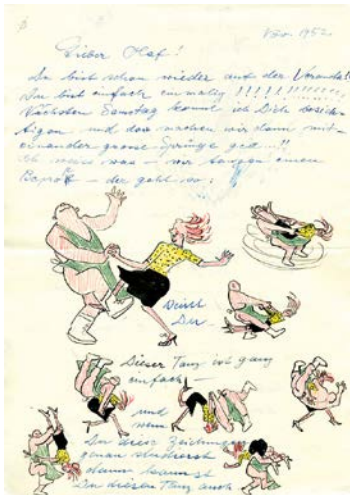 Nov. 1952
Lieber Olaf!
Du bist schon wieder auf der Veranda!
Du bist einfach einmalig!!!!!!!!!!!!
Nächsten Samstag komme ich Dich besich-
tigen - und da machen wir dann mit-
einander grosse Sprünge ...!!
Ich weiss was - wir tanzen einen
- der geht so:
Dieser Tanz ist ganz
einfach -
und
wenn
Du diese Zeichnungen
genau studierst
dann kannst
Du diesen Tanz auch